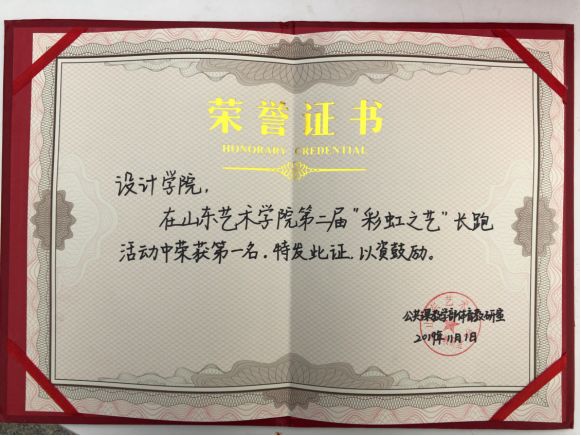 荣誉证书
HONORARY CREDENTIAL
设计学院，
在山东艺术学院第二届“彩虹之艺”长跑
活动中荣获第一名，特发此证，以资鼓励。
公共课教学部体育教研室
2019年11月1日